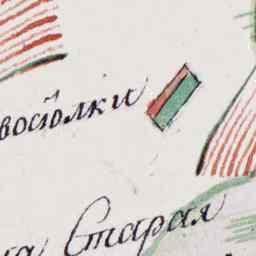 восiолки
на Старая